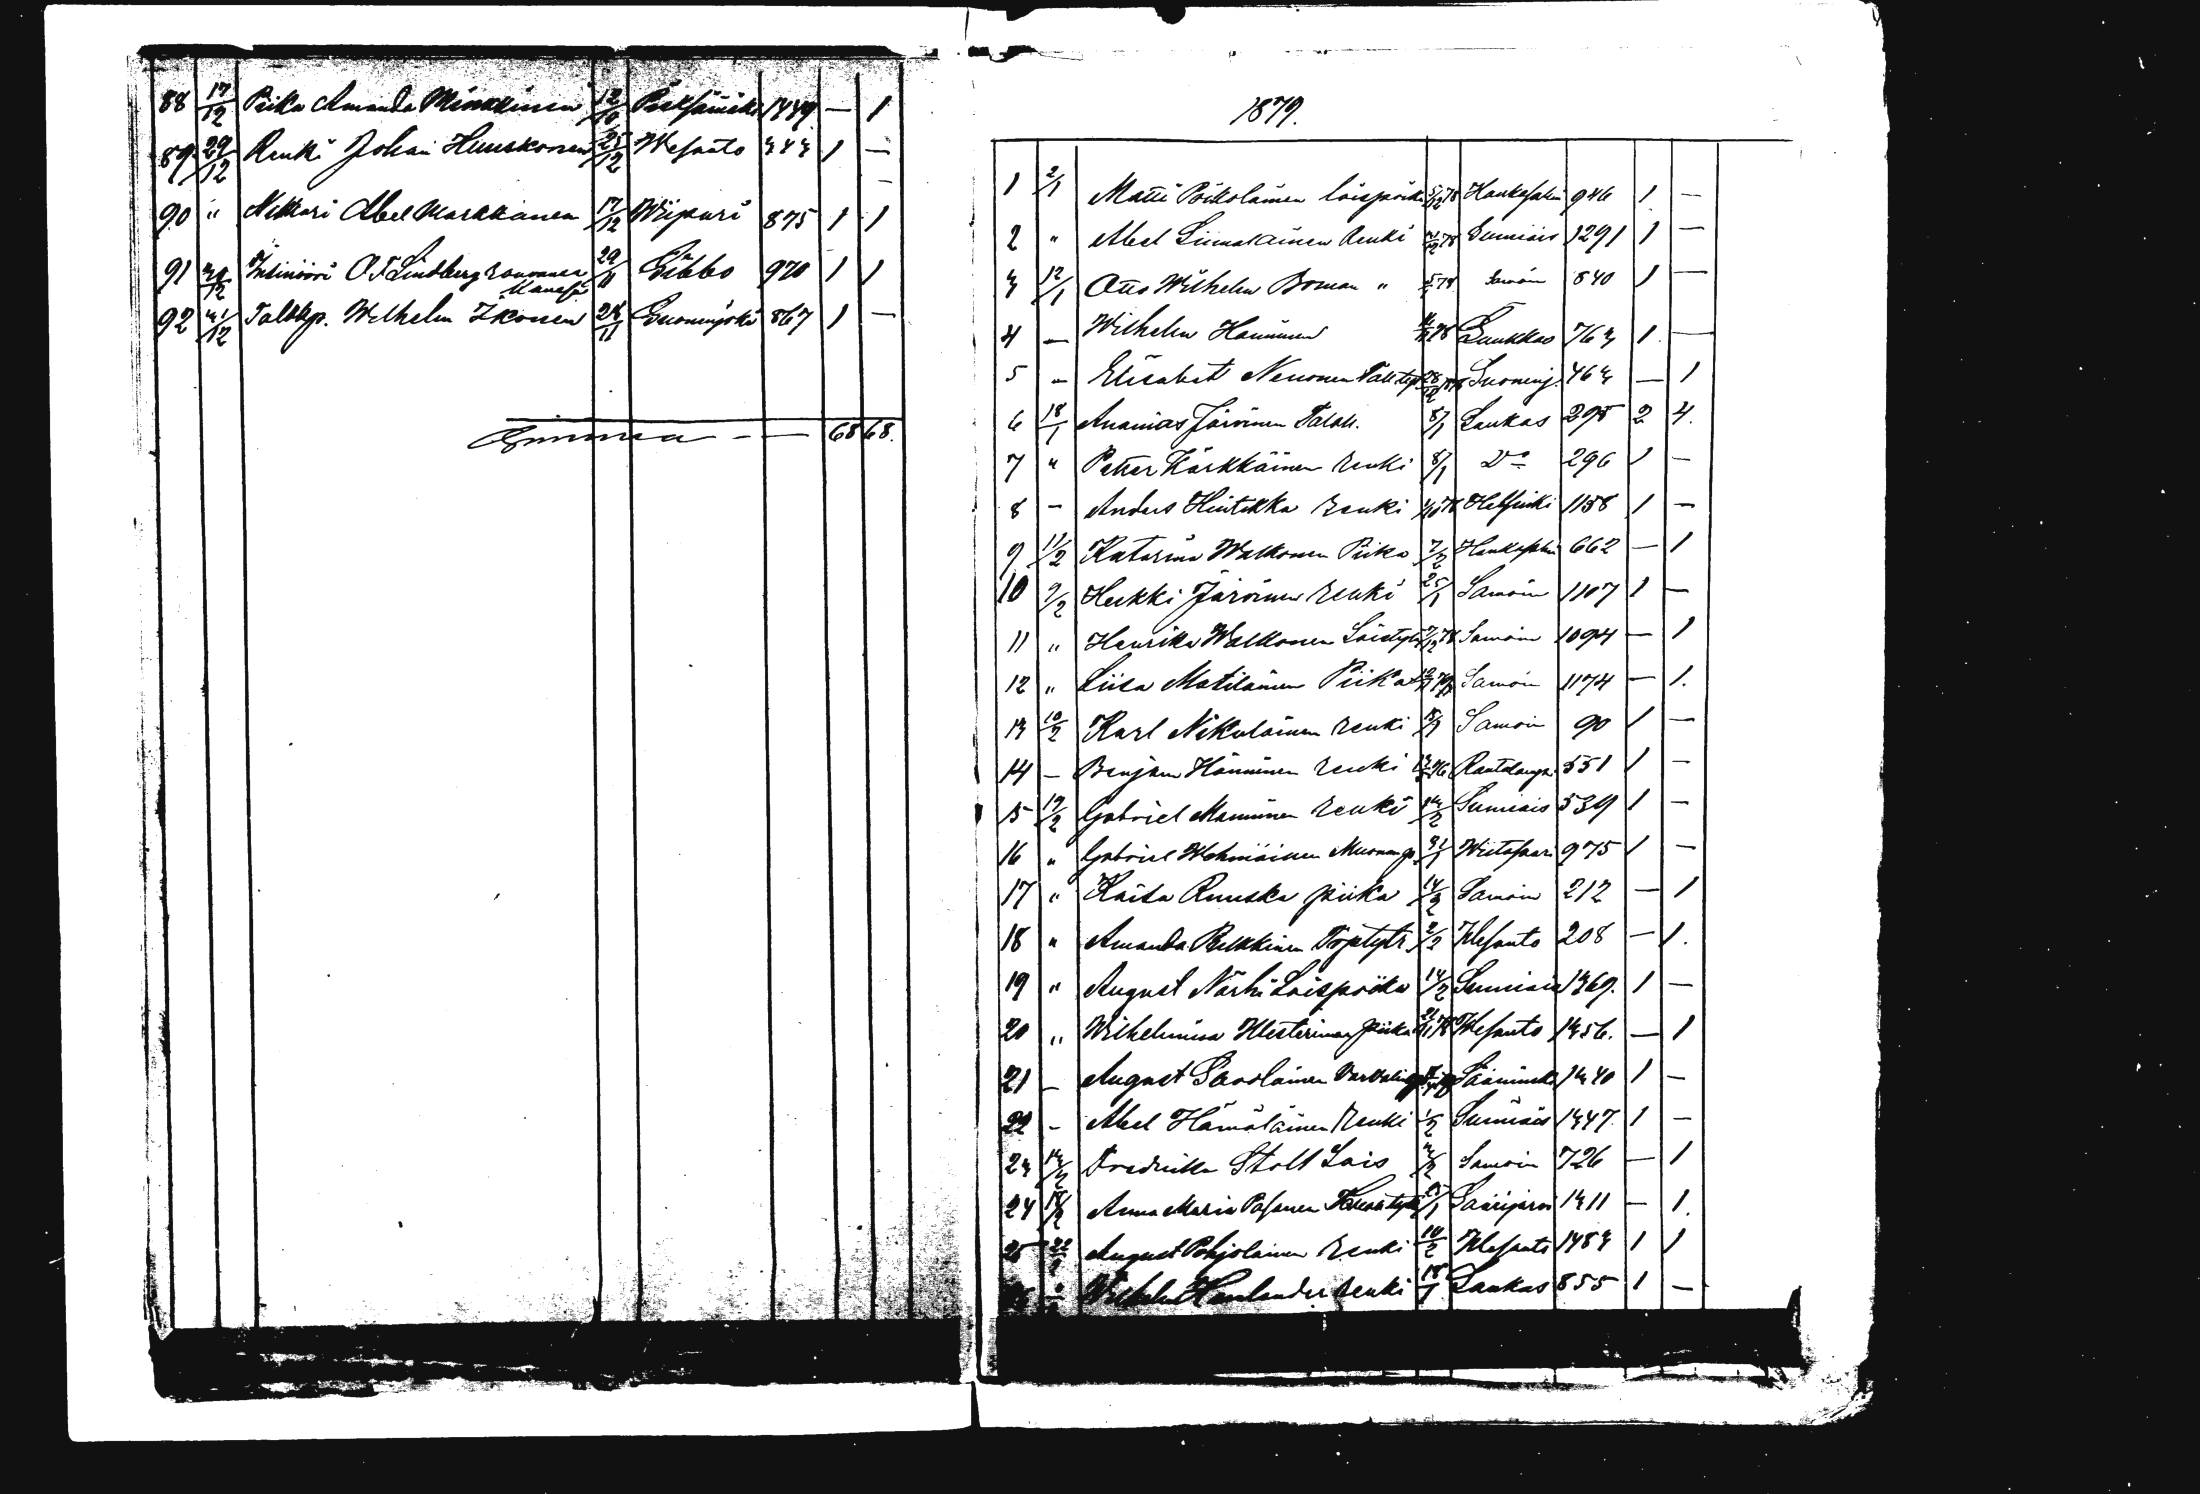 88 17/12 Piika Amanda Minkkinen 12/10 Pieksämäki 1449 — 1
89 29/12 Renki Johan Huuskonen 25/12 Wesanto 343 1 —
90 " Nikkari Abel Markkanen 17/12 Wiipuri 875 1 1
91 30/12 Insinööri O.F. Lindberg rouvansa 29/11 Sibbo 970 1 1
Kanssa
92 31/12 Talokp. Wilhelm Ikonen 24/11 Suoninjoki 867 1 —
Summa - — 68 68.
1879.
1 2/1 Matti Poikolainen loispoika 5/12 78 Hankasalmi 946 1 —
2 " Abel Liimatainen Renki 78 Sumiais 1291 1 —
3 12/1 Otto Wilhelm Boman " 78 Samoin 840 1 —
4 — Wilhelm Hänninen 78 Laukkas 763 1 —
5 " Elisabet Nenonen 28/12 Suoninj. 463 — 1
6 18/1 Ananias Järvinen Talok. 8/1 Laukas 295 2 4.
7 " Petter Kärkkäinen renki 8/1 Do 296 1 —
8 — Anders Hintikka renki 78 Helsinki 1158 1 —
9 11/2 Katarina Walkonen Piika 7/2 Hankasalmi 662 — 1
10 9/2 Heikki Järvinen renki 25/1 Samoin 1107 1 —
11 " Henrika Walkonen Loistytär 7/12 78 Samoin 1094 — 1
12 " Liisa Matilainen Piika Samoin 1174 — 1.
13 10/2 Karl Nikulainen renki 18/1 Samoin 90 1 —
14 — Benjam Hänninen renki 76 Rautalampi 551 1 —
15 12/2 Gabriel Manninen renki 14/2 Sumiais 539 1 —
16 " Gabriel Wehniäinen 31/1 Wiitasaari 975 1 —
17 " Kaisa Ruuska piika 14/2 Samoin 212 — 1
18 " Amanda Pulkkinen Torptytr 2/2 Wesanto 208 — 1.
19 " August Närhi Loispoika 14/2 Sumiais 1369. 1 —
20 " Wilhelmina Westerinen piika 78 Wesanto 1356. — 1
21 — August Savolainen Sääminki 1340 1 —
22 — Abel Hämäläinen Renki 1/2 Sumiais 1347. 1 —
23 14/2 Fredrika Stoll Lois 3/2 Samoin 726 — 1
24 18/2 Anna Maria Pasanen 25/1 Saarijärvi 1311 — 1.
25 22/2 August Pohjolainen renki 10/2 Wesanto 1483 1 1
Wilhelm renki 18/1 Laukas 855 1 —